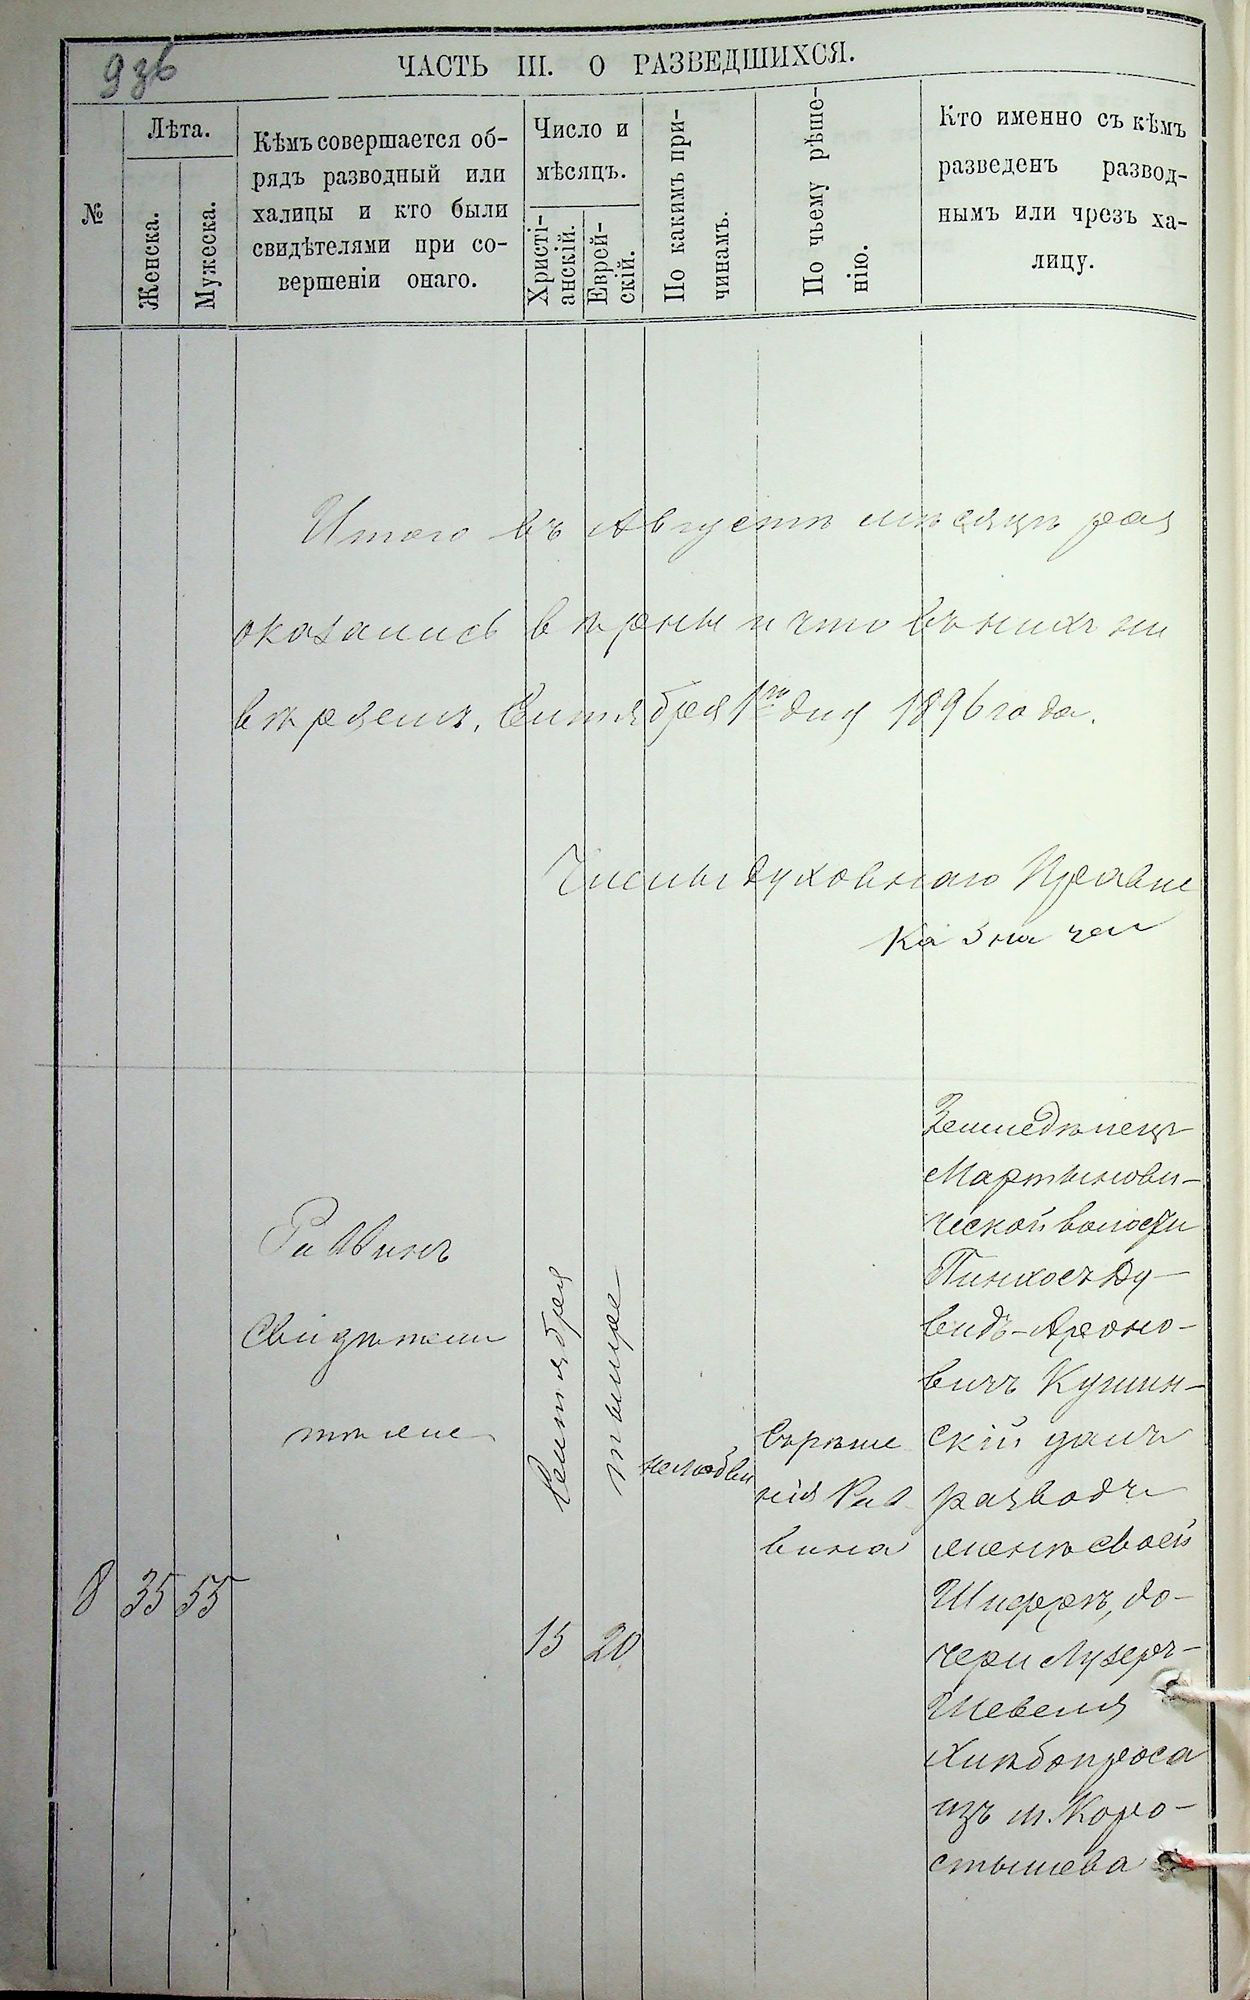 93б
ЧАСТЬ III. О РАЗВЕДШИХСЯ.
№
Лѣта.
Женска.
Мужеска.
Кѣмъ совершается об-
рядъ разводный или
халицы и кто были
свидѣтелями при со-
вершеніи онаго.
Число и
мѣсяцъ.
Христі-
анскій.
Еврей-
скій.
По какимъ при-
чинамъ.
По чьему рѣше-
нію.
Кто именно съ кѣмъ
разведенъ развод-
нымъ или чрезъ ха-
лицу.
Итого въ Августѣ мѣсяцѣ раз
оказались вѣрны и что въ нихъ ни
вѣряемъ. Сентября 1го дня 1896 года.
Члены духовнаго Правле
Казначей
8
35
55
Раввинъ
Свидѣтели
тѣже
Сентября
15
тышре
20
нелюбви
Въ рѣше
нія Рав
вина
Земледѣлецъ
Мартынови-
ческой волости
Пинхосъ Ду-
видъ-Ароно-
вичъ Кушин-
скій далъ
разводъ
женѣ своей
Шифрѣ, до-
чери Лузеръ-
Шевеля
Хлѣбопроса
изъ м. Коро-
стышева